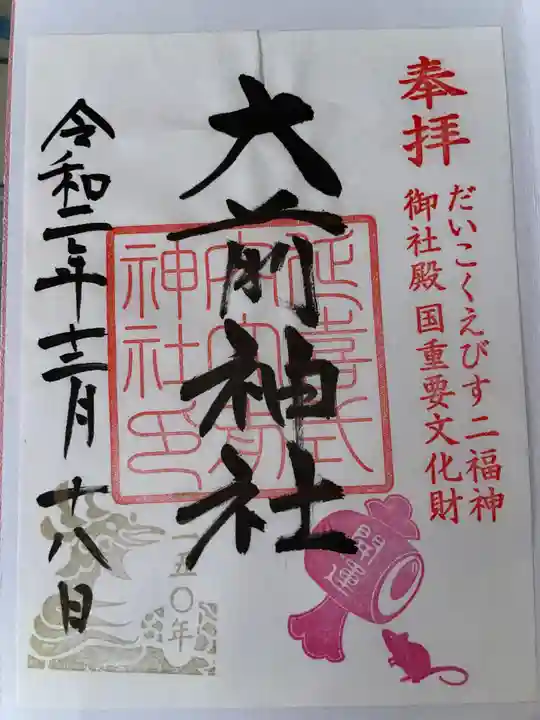 奉拝
だいこくえびす二福神
御社殿国重要文化財
大前神社
延喜式
神社印
令和二年十二月十八日
一五〇年